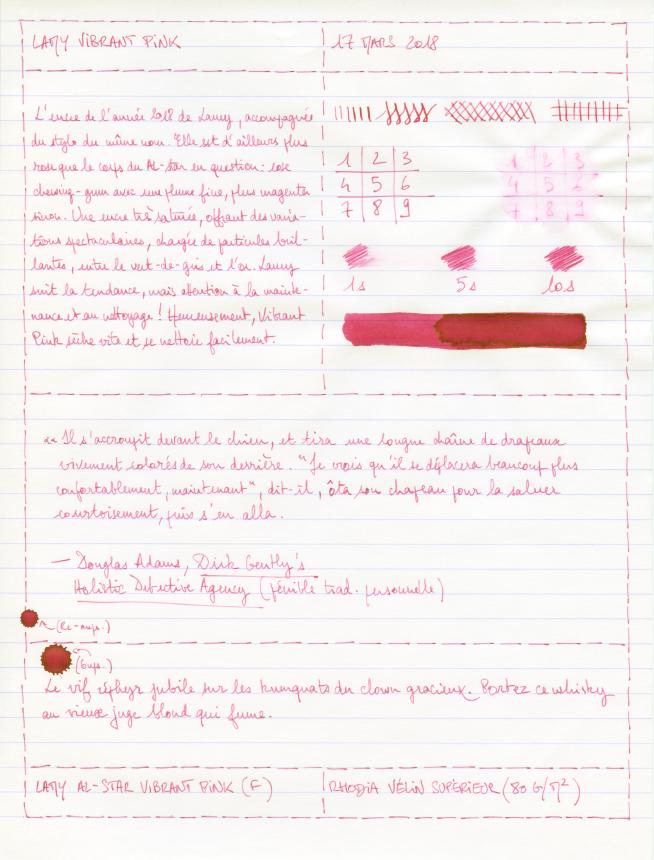 LAMY VIBRANT PINK
17 MARS 2018
L'encre de l'année 2018 de Lamy, accompagnée
du stylo du même nom. Elle est d'ailleurs plus
rose que le corps du Al-Star en question : rose
chewing-gum avec une plume fine, plus magenta
sinon. Une encre très saturée, offrant des varia-
tions spectaculaires, chargée de particules bril-
lantes, entre le vert-de-gris et l'or. Lamy
suit la tendance, mais attention à la mainte-
nance et au nettoyage ! Heureusement, Vibrant
Pink sèche vite et se nettoie facilement.
1 2 3
4 5 6
7 8 9
1 2 3
4 5 6
7 8 9
1s 5s 10s
"Il s'accroupit devant le chien, et tira une longue chaîne de drapeaux
vivement colorés de son derrière. "Je crois qu'il se déplacera beaucoup plus
confortablement, maintenant", dit-il, ôta son chapeau pour la saluer
courtoisement, puis s'en alla.
— Douglas Adams, Dirk Gently's
Holistic Detective Agency (pénible trad. personnelle)
(Re-oups.)
(Oups.)
Le vif zéphyr jubile sur les kumquats du clown gracieux. Portez ce whisky
au vieux juge blond qui fume.
LAMY AL-STAR VIBRANT PINK (F)
RHODIA VÉLIN SUPÉRIEUR (80 G/M²)